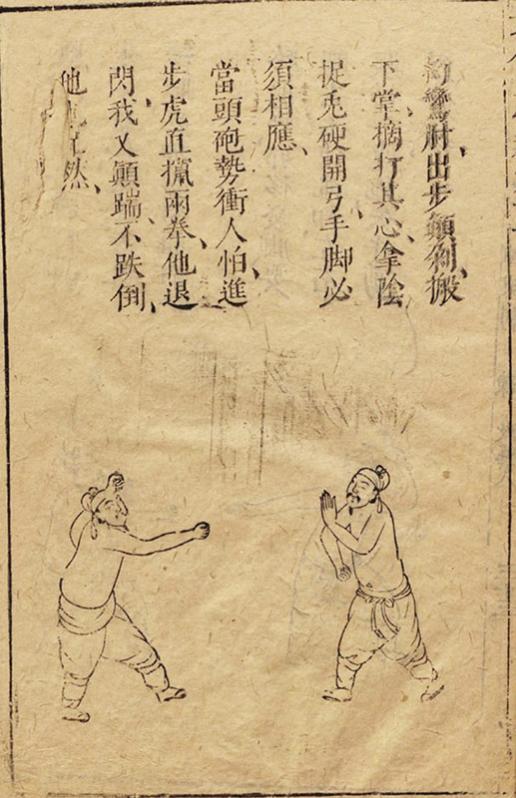 拗鸞肘、出步顛剁、搬
下掌、摘打其心、拿陰
捉兎硬開弓、手脚必
須相應、
當頭砲勢衝人怕、進
步虎直攛兩拳、他退
閃、我又顛踹、不跌倒、
他然、